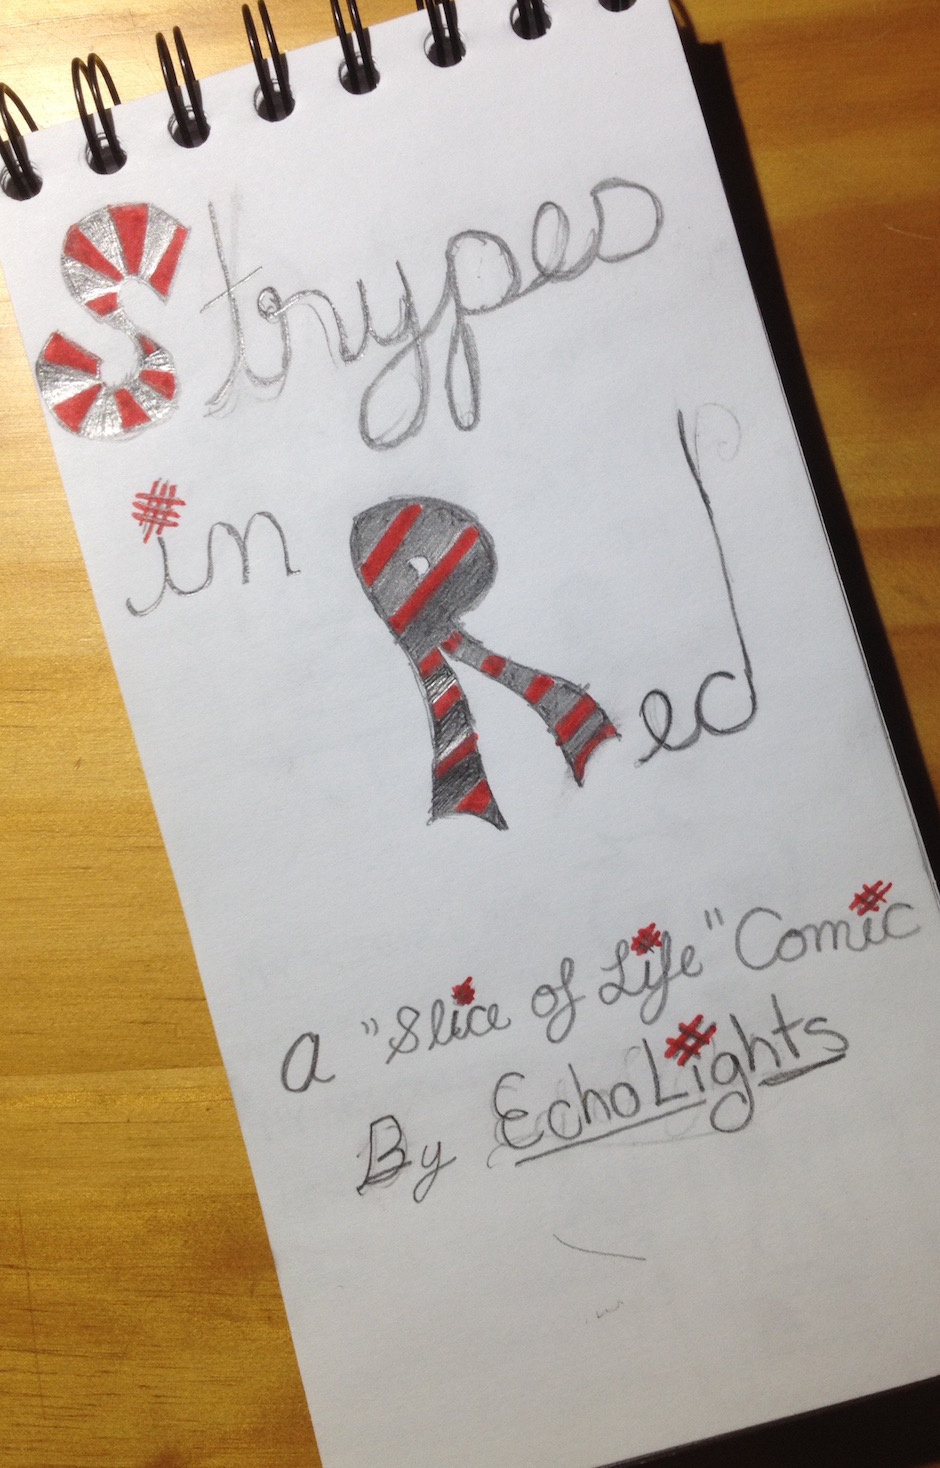 Strypes
in Red
A "Slice of Life" Comic
By EchoLights